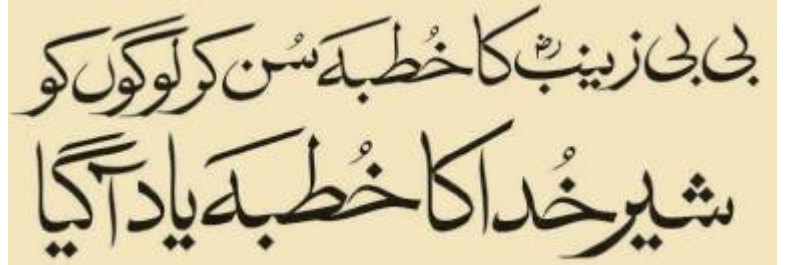 بی بی زینبؓ کا خُطبہَ سُن کر لوگوں کو
شیرِ خُدا کا خُطبہَ یاد آ گیا